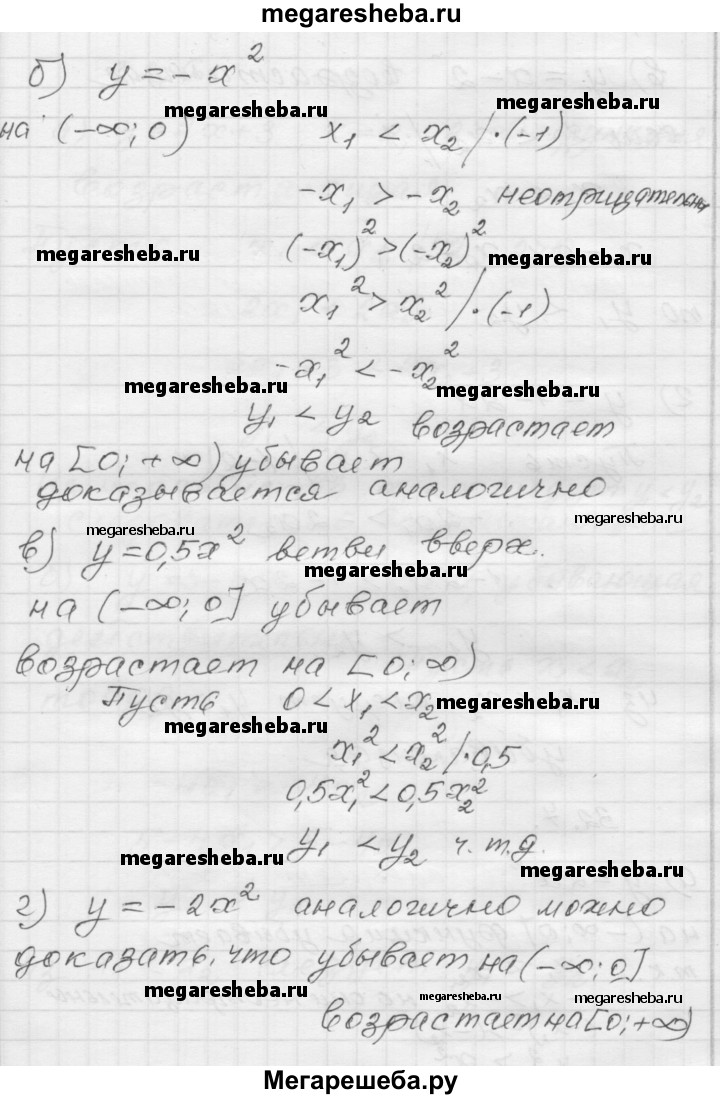 megaresheba.ru
б) y = - x²
megaresheba.ru megaresheba.ru
на (-∞; 0) x₁ < x₂ / ·(-1)
-x₁ > -x₂ неотрицательны
megaresheba.ru (-x₁)² > (-x₂)² megaresheba.ru
x₁² > x₂² / ·(-1)
-x₁² < -x₂²
megaresheba.ru megaresheba.ru
y₁ < y₂ возрастает
на [0; +∞) убывает
доказывается аналогично
megaresheba.ru megaresheba.ru
в) y = 0,5x² ветви вверх.
megaresheba.ru
на (-∞; 0] убывает
возрастает на [0; ∞)
Пусть 0 < x₁ < x₂ megaresheba.ru
megaresheba.ru
x₁² < x₂² / ·0,5
0,5x₁² < 0,5x₂²
y₁ < y₂ ч.т.д.
megaresheba.ru megaresheba.ru
г) y = - 2x² аналогично можно
доказать, что убывает на (-∞; 0]
megaresheba.ru megaresheba.ru megaresheba.ru
возрастает на [0; +∞)
Мегарешеба.ру